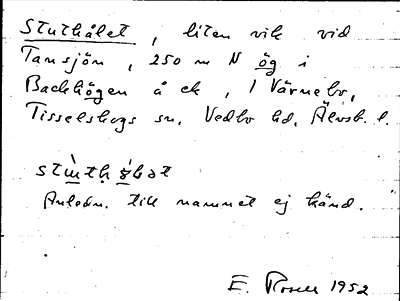 Stuthålet, liten vik vid
Tansjön, 250 m N ög i
Backhögen å ek, 1 Värnebo,
Tisselskogs sn. Vedbo hd. Älvsb. l.
Anledn. till namnet ej känd.
E. Rosell 1952